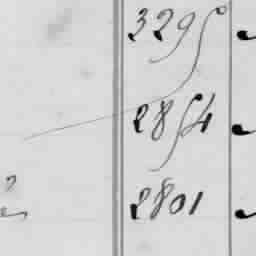 3295
2854
2801